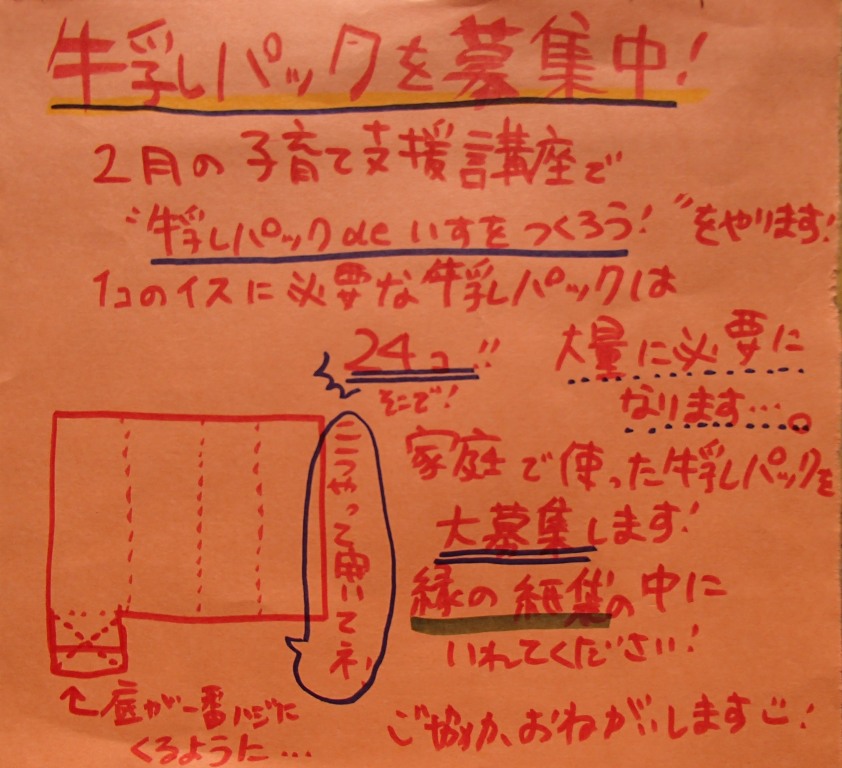 牛乳パックを募集中!
2月の子育て支援講座で
"牛乳パックdeいすをつくろう!"をやります!
1コのイスに必要な牛乳パックは
24コ!! 大量に必要に
なります…。
そこで!
家庭で使った牛乳パックを
大募集します!
縁の紙袋の中に
いれてください!
ご協力、おねがいします!
こうやって開いてネ!
←底が一番ハジに
くるように…